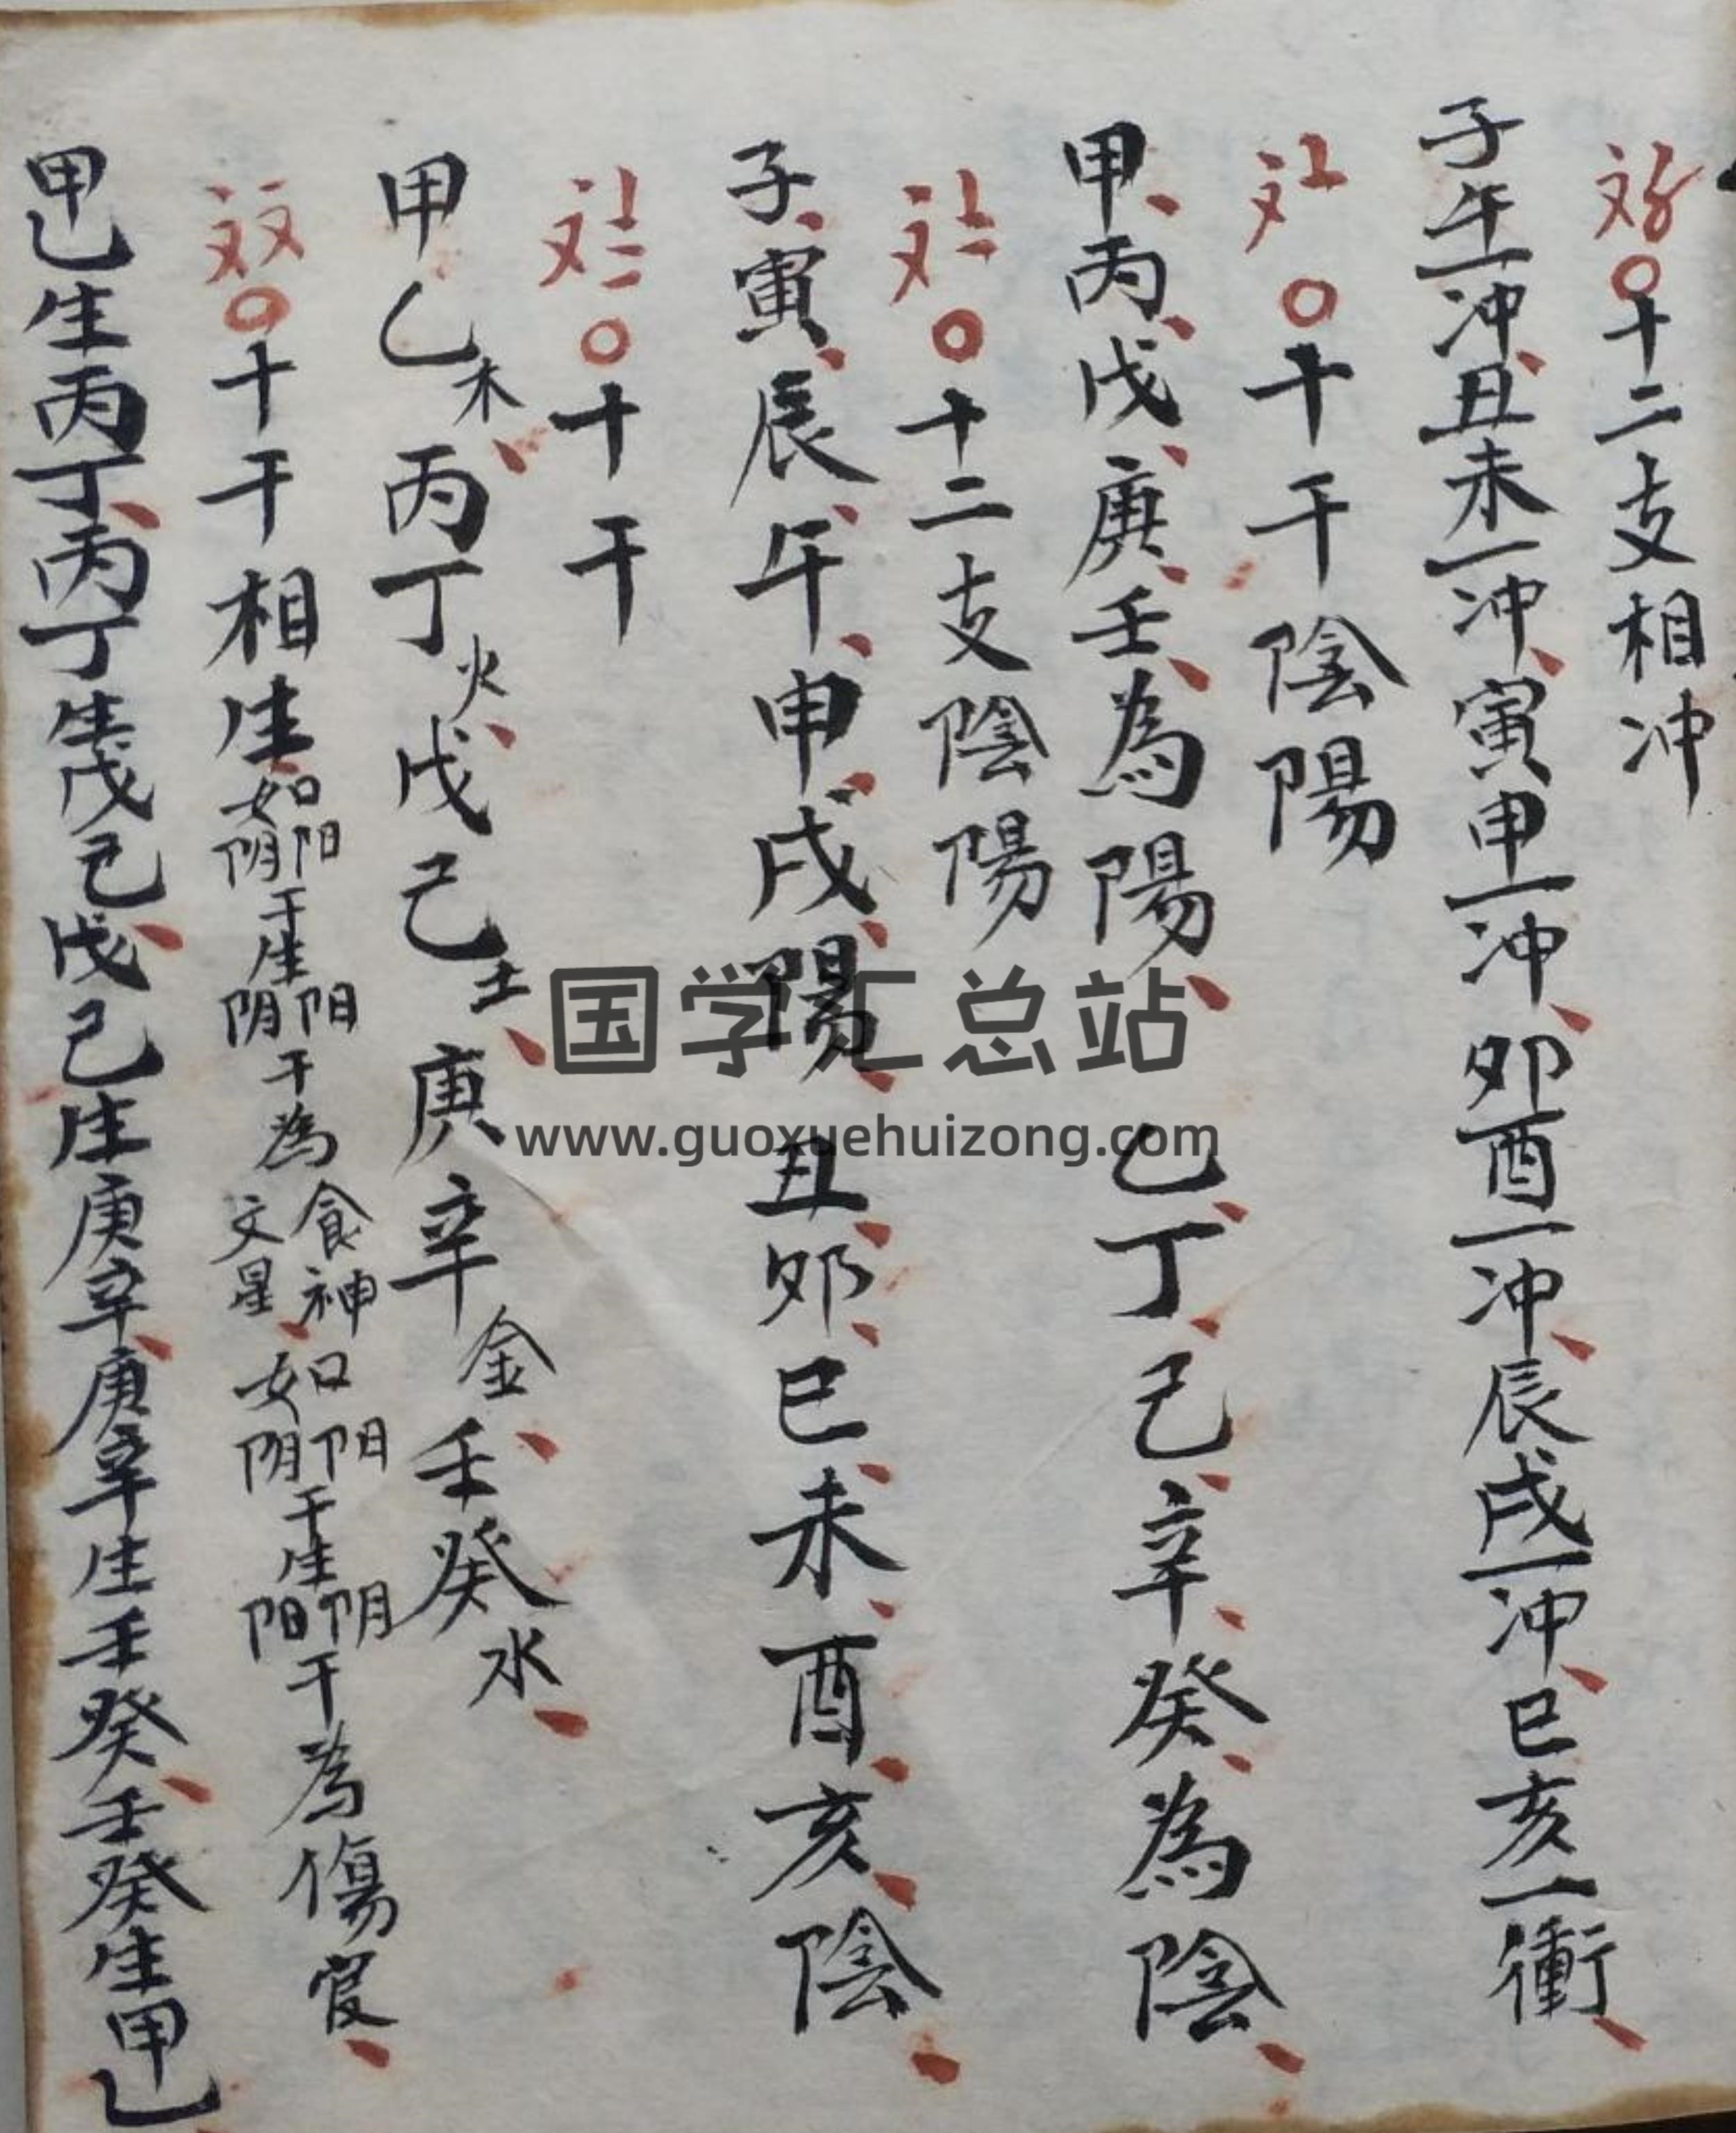 ○十二支相冲
子午一冲、丑未一冲、寅申一冲、卯酉一冲、辰戌一冲、巳亥一衝、
○十干陰陽
甲、丙、戊、庚、壬、為陽、乙、丁、己、辛、癸、為陰、
○十二支陰陽
子、寅、辰、午、申、戌、陽、丑、卯、巳、未、酉、亥、陰、
○十干
甲乙木、丙丁火、戊己土、庚辛金、壬癸水、
○十干相生如阳阴干生阳阴干為食神文星、如阳阴干生阴阳干為傷官、
甲乙生丙丁、丙丁生戊己、戊己生庚辛、庚辛生壬癸、壬癸生甲乙
国学汇总站
www.guoxuehuizong.com